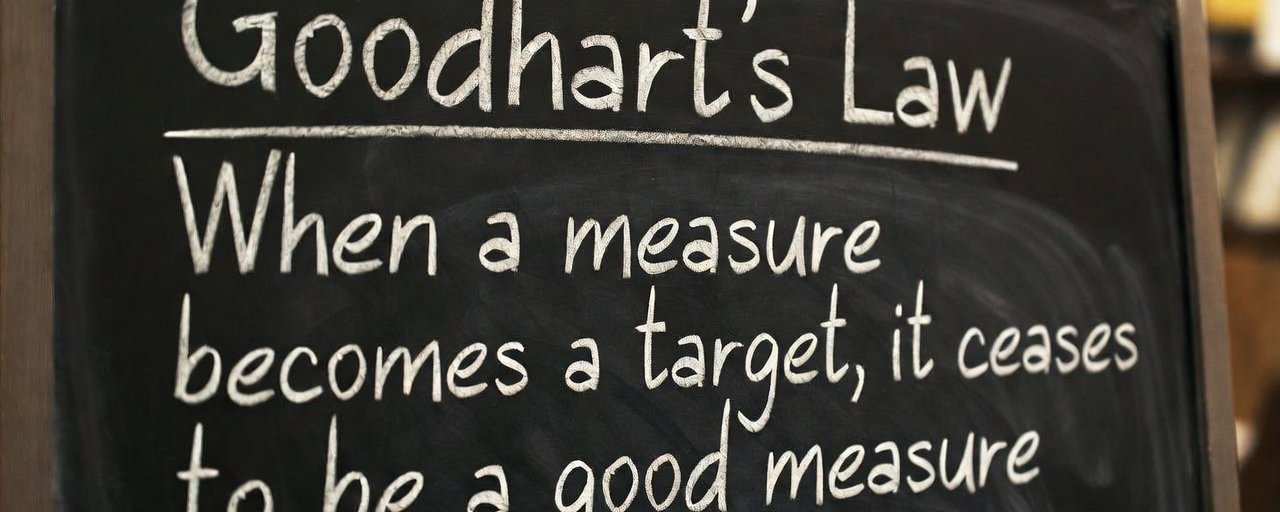 Goodhart's Law
When a measure
becomes a target, it ceases
to be a good measure